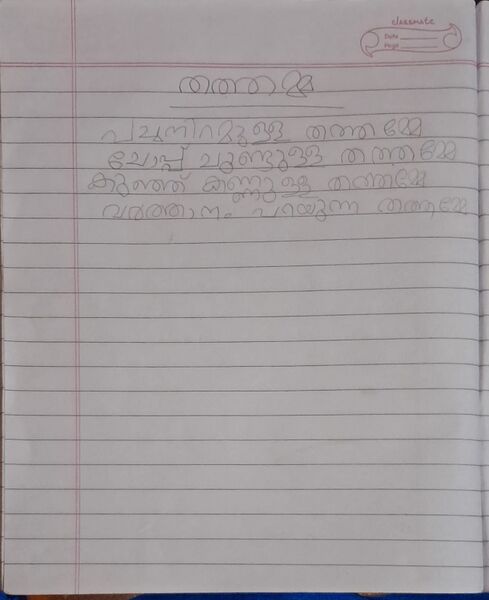 classmate
Date
Page
തത്തമ്മ
പച്ചനിറമുള്ള തത്തമ്മേ
ചോപ്പ് ചുണ്ടുള്ള തത്തമ്മേ
കുഞ്ഞ് കണ്ണുള്ള തത്തമ്മേ
വർത്താനം പറയുന്ന തത്തമ്മേ